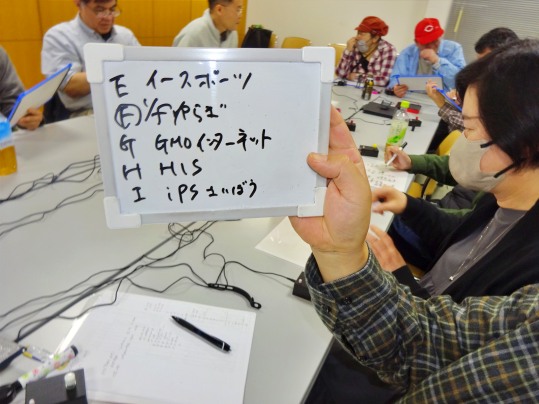 E イースポーツ
Ⓕ
G GMOインターネット
H HIS
I iPSさいぼう